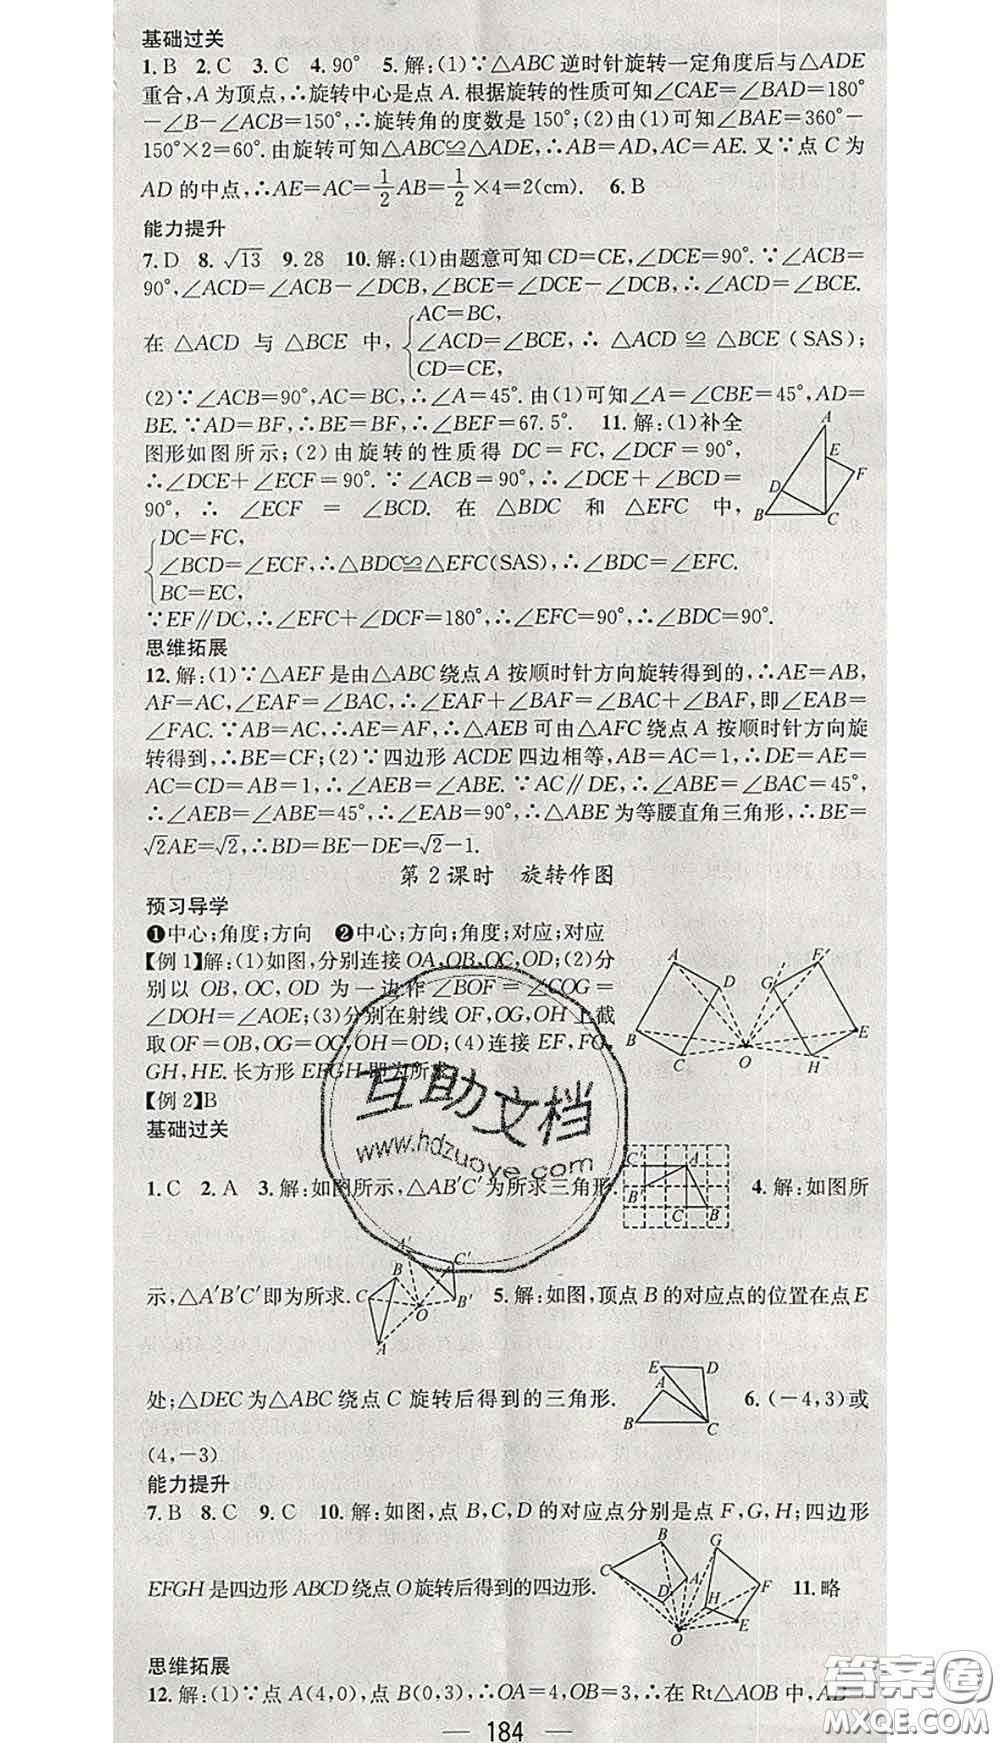 基础过关
1. B  2. C  3. C  4. 90°  5. 解:(1)∵△ABC 逆时针旋转一定角度后与△ADE
重合,A 为顶点,∴旋转中心是点 A. 根据旋转的性质可知∠CAE=∠BAD=180°
-∠B-∠ACB=150°,∴旋转角的度数是 150°;(2)由(1)可知∠BAE=360°-
150°×2=60°. 由旋转可知△ABC≌△ADE,∴AB=AD,AC=AE. 又∵点 C 为
AD 的中点,∴AE=AC=1/2AB=1/2×4=2(cm).  6. B
能力提升
7. D  8. √13  9. 28  10. 解:(1)由题意可知 CD=CE,∠DCE=90°. ∵∠ACB=
90°,∠ACD=∠ACB-∠DCB,∠BCE=∠DCE-∠DCB,∴∠ACD=∠BCE.
AC=BC,
在△ACD 与△BCE 中, ∠ACD=∠BCE, ∴△ACD≌△BCE(SAS);
CD=CE,
(2)∵∠ACB=90°,AC=BC,∴∠A=45°. 由(1)可知∠A=∠CBE=45°,AD=
BE. ∵AD=BF,∴BE=BF,∴∠BEF=67.5°.  11. 解:(1)补全
图形如图所示;(2)由旋转的性质得 DC=FC,∠DCF=90°,
∴∠DCE+∠ECF=90°. ∵∠ACB=90°,∴∠DCE+∠BCD=
90°,∴∠ECF=∠BCD. 在△BDC 和△EFC 中,
DC=FC,
∠BCD=∠ECF, ∴△BDC≌△EFC(SAS),∴∠BDC=∠EFC.
BC=EC,
∵EF∥DC,∴∠EFC+∠DCF=180°,∴∠EFC=90°,∴∠BDC=90°.
A
E
F
D
B
C
思维拓展
12. 解:(1)∵△AEF 是由△ABC 绕点 A 按顺时针方向旋转得到的,∴AE=AB,
AF=AC,∠EAF=∠BAC,∴∠EAF+∠BAF=∠BAC+∠BAF,即∠EAB=
∠FAC. ∵AB=AC,∴AE=AF,∴△AEB 可由△AFC 绕点 A 按顺时针方向旋
转得到,∴BE=CF;(2)∵四边形 ACDE 四边相等,AB=AC=1,∴DE=AE=
AC=CD=AB=1,∴∠AEB=∠ABE. ∵AC∥DE,∴∠ABE=∠BAC=45°,
∴∠AEB=∠ABE=45°,∴∠EAB=90°,∴△ABE 为等腰直角三角形,∴BE=
√2AE=√2,∴BD=BE-DE=√2-1.
第 2 课时  旋转作图
预习导学
❶中心;角度;方向  ❷中心;方向;角度;对应;对应
【例 1】解:(1)如图,分别连接 OA,OB,OC,OD;(2)分
别以 OB,OC,OD 为一边作∠BOF=∠COG=
∠DOH=∠AOE;(3)分别在射线 OF,OG,OH 上截
取 OF=OB,OG=OC,OH=OD;(4)连接 EF,FG,
GH,HE. 长方形 EFGH 即为所求.
A
F′
D
G
B
C
O
H
E
【例 2】B
基础过关
1. C  2. A  3. 解:如图所示,△AB′C′为所求三角形.  4. 解:如图所
C′
A
B′
C
B
示,△A′B′C′即为所求.  5. 解:如图,顶点 B 的对应点的位置在点 E
A′
C′
B
C
B′
O
A
处;△DEC 为△ABC 绕点 C 旋转后得到的三角形.  6. (-4,3)或
E
D
A
B
C
(4,-3)
能力提升
7. B  8. C  9. C  10. 解:如图,点 B,C,D 的对应点分别是点 F,G,H;四边形
EFGH 是四边形 ABCD 绕点 O 旋转后得到的四边形.  11. 略
B
G
C
A
F
D
H
E
O
思维拓展
12. 解:(1)∵点 A(4,0),点 B(0,3),∴OA=4,OB=3,∴在 Rt△AOB 中,AB=
184
互助文档
www.hdzuoye.com
答案圈
MXQE.COM